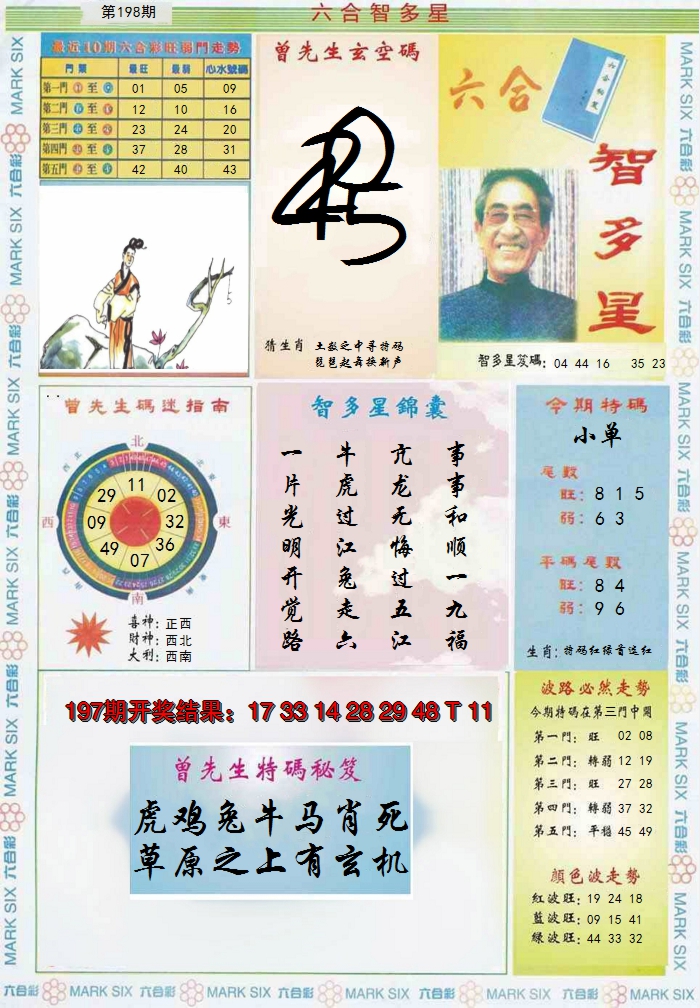 第198期
六合智多星
最近10期六合彩旺弱門走勢
門類 最旺 最弱 心水號碼
第一門 至 01 05 09
第二門 至 12 10 16
第三門 至 23 24 20
第四門 至 37 28 31
第五門 至 42 40 43
曾先生玄空碼
猜生肖 土数之中寻特码
琵琶起舞换新声
六合
智多星
智多星笈碼: 04 44 16 35 23
曾先生碼迷指南
北
11
29 02
西 09 32 東
49 36
07
南
喜神: 正西
財神: 西北
大利: 西南
智多星錦囊
事事和顺一九福
亢龙无悔过五江
牛虎过江兔走六
一片光明开觉路
今期特碼
小单
尾數
旺: 8 1 5
弱: 6 3
平碼尾數
旺: 8 4
弱: 9 6
生肖: 特码红绿首选红
197期开奖结果: 17 33 14 28 29 48 T 11
曾先生特碼秘笈
虎鸡兔牛马肖死
草原之上有玄机
波路必然走勢
今期特碼在第三門中開
第一門: 旺 02 08
第二門: 轉弱 12 19
第三門: 旺 27 28
第四門: 轉弱 37 32
第五門: 平穩 45 49
顏色波走勢
紅波旺: 19 24 18
藍波旺: 09 15 41
綠波旺: 44 33 32
MARK SIX 六合彩